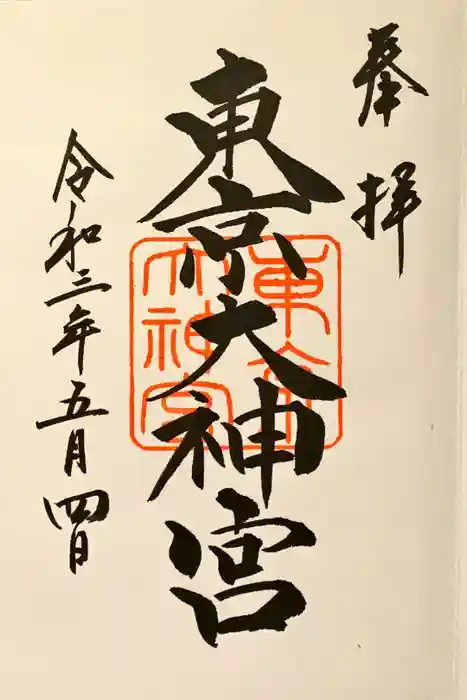 奉拝
東京大神宮
東京大神宮
令和三年五月四日